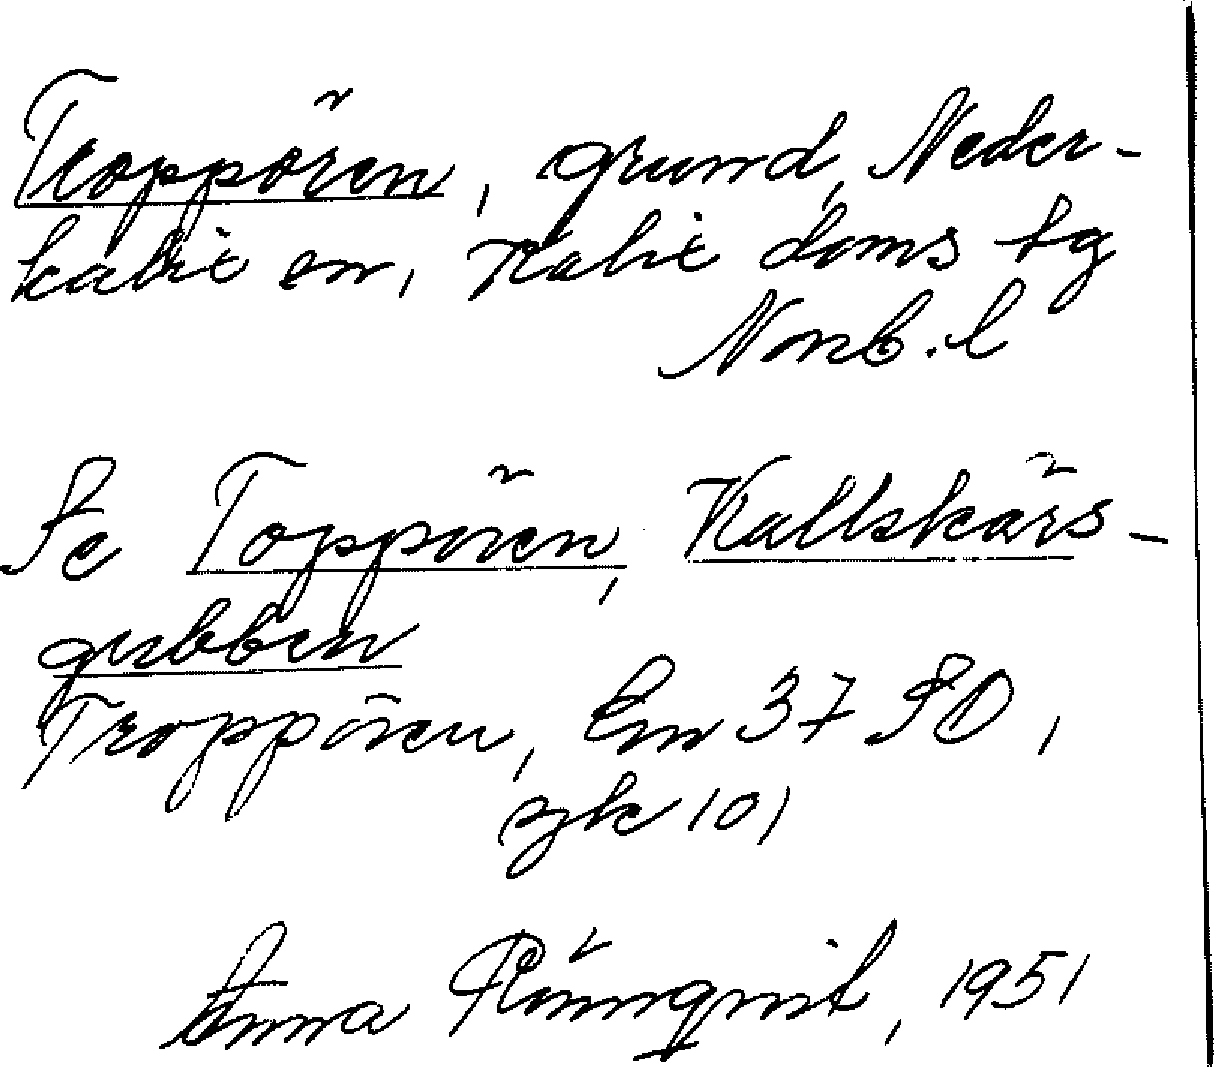 Troppören, grund, Neder-
kalix sn, Kalix doms tg
Norrb. l
Se Toppören, Kallskärs-
grubben
Troppören, Em 37 SO,
sjk 101
Anna Rönnqvist, 1951